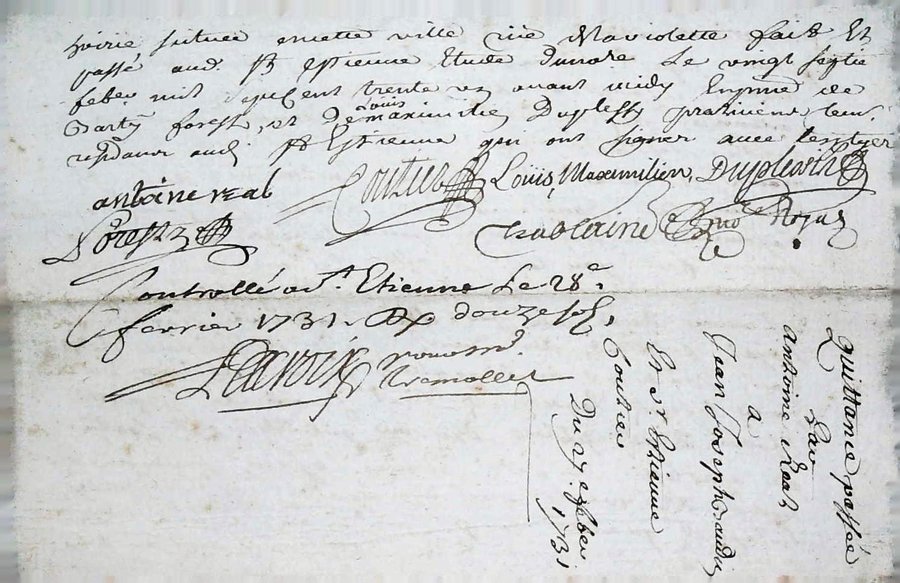 hoirie située en cette ville rüe Maviolette fait Et
passé aud. St Estienne Etude dunore Le vingt septie
feber mil sept cent trente un avant midy En pnce de
forest, et De Louis maximilien Duplessy praticiens
aud St Estienne qui ont signer avec
antoine real Coutier Louis, Maximilien, Duplessy
forest Chaslaine Rojas
Controllé a St. Etienne Le 28e
fevrier 1731. R douze sols,
Delacroix
Tremollet
quittance passée
par
antoine Real
a
Jean Joseph
Et St Estienne
Coutier
Du 27e feber
1731